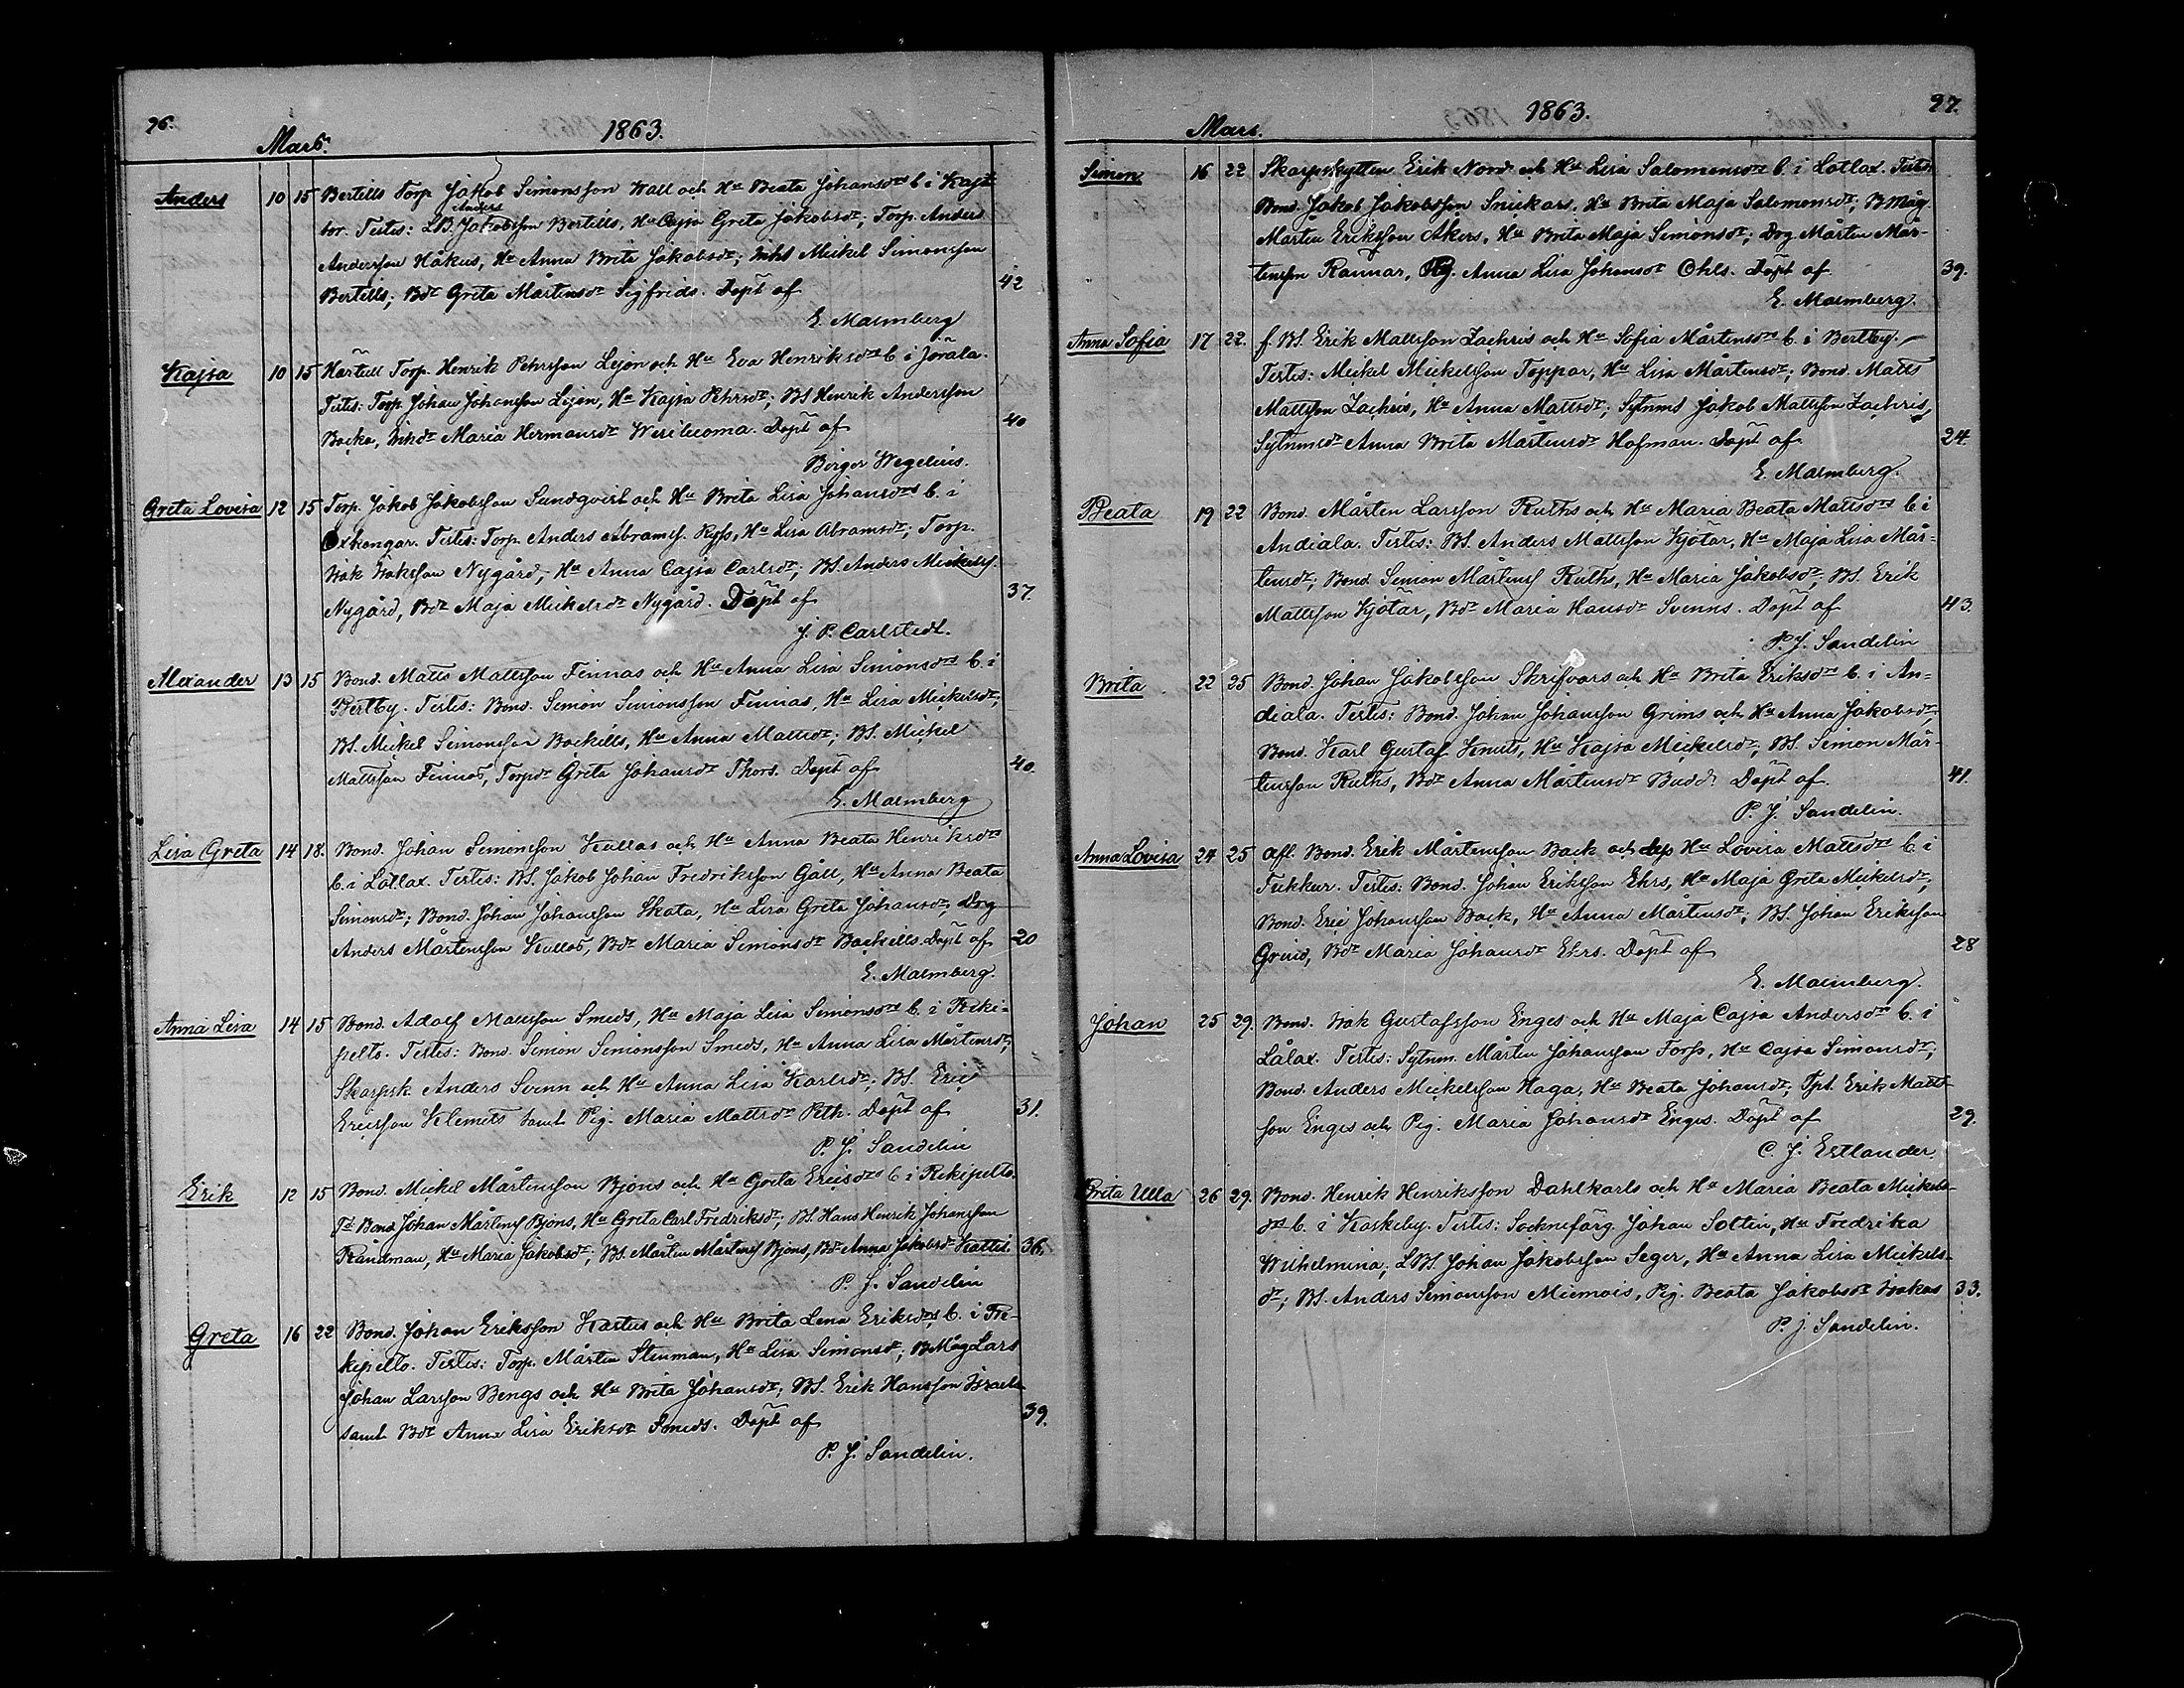 96.
Mars.
1863.
Anders 10 15 Bertills Torp. Jakob Simonsson Kall och Hu Beata Johansdrs b. i Kajt
Anders
bor. Testes: LB. Jakobsson Bertills, Hu Cajsa Greta Jakobsdr; Torp. Anders
Andersson Håkus, Hu Anna Brita Jakobsdr; Inhs Mickel Simonsson
Bertills; Bdr Greta Mårtensdr Sigfrids. Döpt af 42
E. Malmberg
Kajsa 10 15 Härtull Torp. Henrik Pehrsson Lejon och Hu Eva Henriksdrs b i Jörala.
Testes: Torp. Johan Johansson Lejon, Hu Kajsa Pehrsdr; BS Henrik Andersson
Backa, Inhdr Maria Hermansdr Wesiluoma. Döpt af 40
Birger Wegelius.
Greta Lovisa 12 15 Torp. Jakob Jakobsson Sundqvist och Hu Brita Lisa Johansdrs b. i
Oxkangar. Testes: Torp. Anders Abramss. Ryss, Hu Lisa Abramsdr; Torp.
Isak Isaksson Nygård, Hu Anna Cajsa Carlsdr; BS. Anders Mickelss.
Nygård, Bdr Maja Mickelsdr Nygård. Döpt af 37.
J. P. Carlstedt.
Alexander 13 15 Bond. Matts Mattsson Finnas och Hu Anna Lisa Simonsdrs b. i
Bertby. Testes: Bond. Simon Simonsson Finnas, Hu Lisa Mickelsdr;
BS. Mickel Simonsson Backills, Hu Anna Mattsdr; BS. Mickel
Mattsson Finnas, Torpdr Greta Johansdr Thors. Döpt af 40.
E. Malmberg
Lisa Greta 14 18. Bond. Johan Simonsson Kullas och Hu Anna Beata Henriksdrs
b. i Lotlax. Testes: BS. Jakob Johan Fredriksson Gåll, Hu Anna Beata
Simonsdr; Bond. Johan Johansson Skata, Hu Lisa Greta Johansdr; Drg
Anders Mårtensson Kullas, Bdr Maria Simonsdr Backills. Döpt af 20
E. Malmberg.
Anna Lisa 14 15 Bond. Adolf Mattsson Smeds, Hu Maja Lisa Simonsdrs b. i Reki-
pelto. Testes: Bond. Simon Simonsson Smeds, Hu Anna Lisa Mårtensdr;
Skarpsk. Anders Svenn och Hu Anna Lisa Karlsdr; BS. Eric
Ericsson Klemets samt Pig. Maria Mattsdr Peth. Döpt af 31.
P. J. Sandelin
Erik 12 15 Bond. Mickel Mårtensson Bjöns och Hu Greta Ericsdrs b i Rekipelto.
Tt Bond Johan Mårtenss Bjöns, Hu Greta Carl Fredriksdr; BS. Hans Henrik Johansson
Råndman, Hu Maria Jakobsdr; BS. Mårten Mårtenss Bjöns, Bdr Anna Jakobsdr Kattil. 36.
P. J. Sandelin
Greta 16 22 Bond. Johan Eriksson Kartus och Hu Brita Lena Eriksdrs b. i Re-
kipelto. Testes: Torp. Mårten Stenman, Hu Lisa Simonsdr; BMåg Lars
Johan Larsson Bengs och Hu Brita Johansdr; BS. Erik Hansson Israels
samt Bdr Anna Lisa Eriksdr Smeds. Döpt af 39.
P. J. Sandelin.
97.
Mars.
1863.
Simon 16 22 Skarpskytten Erik Nord och Hu Lisa Salomonsdrs b. i Lotlax. Testes
Bond. Jakob Jakobsson Snickars, Hu Brita Maja Salomonsdr; BMåg.
Mårten Eriksson Akers, Hu Brita Maja Simonsdr; Drg. Mårten Mår-
tensson Rannar, Pig. Anna Lisa Johansdr Ohls. Döpt af 39.
E. Malmberg.
Anna Sofia 17 22. f. BS. Erik Mattsson Zachris och Hu Sofia Mårtensdrs b. i Bertby.
Testes: Mickel Mickelsson Toppar, Hu Lisa Mårtensdr; Bond. Matts
Mattsson Zachris, Hu Anna Mattsdr; Sytnms Jakob Mattsson Zachris,
Sytnmsdr Anna Brita Mårtensdr Hofman. Döpt af 24.
E. Malmberg.
Beata 19 22 Bond. Mårten Larsson Ruths och Hu Maria Beata Mattsdrs b. i
Andiala. Testes: BS. Anders Mattsson Kjötar, Hu Maja Lisa Mår-
tensdr; Bond Simon Mårtenss Ruths, Hu Maria Jakobsdr; BS. Erik
Mattsson Kjötar, Bdr Maria Hansdr Svenns. Döpt af 43.
P. J. Sandelin
Brita 22 25 Bond. Johan Jakobsson Skrifvars och Hu Brita Eriksdrs b. i An-
diala. Testes: Bond. Johan Johansson Grims och Hu Anna Jakobsdr;
Bond. Karl Gustaf Knuts, Hu Kajsa Mickelsdr; BS. Simon Mår-
tensson Ruths, Bdr Anna Mårtensdr Budd. Döpt af 41.
P. J. Sandelin.
Anna Lovisa 24 25 Afl. Bond. Erik Mårtensson Back och Hu Lovisa Mattsdrs b. i
Tukkur. Testes: Bond. Johan Eriksson Ehrs, Hu Maja Greta Mickelsdr;
Bond. Eric Johansson Back, Hu Anna Mårtensdr; BS. Johan Eriksson
Grind, Bdr Maria Johansdr Ehrs. Döpt af 28
E. Malmberg.
Johan 25 29. Bond. Isak Gustafsson Enges och Hu Maja Cajsa Andersdrs b. i
Lålax. Testes: Sytnm. Mårten Johansson Forss, Hu Cajsa Simonsdr;
Bond. Anders Mickelsson Haga, Hu Beata Johansdr; Tpt. Erik Matts-
son Enges och Pig. Maria Johansdr Enges. Döpt af 29.
C. J. Estlander.
Brita Ulla 26 29. Bond. Henrik Henriksson Dahlkarls och Hu Maria Beata Mickels-
drs b. i Kaskeby. Testes: Socknefärg. Johan Soltin, Hu Fredrika
Wilhelmina; LBS. Johan Jakobsson Seger, Hu Anna Lisa Mickels-
dr; BS. Anders Simonsson Miemois, Pig. Beata Jakobsdr Isakas 33.
P. J. Sandelin.